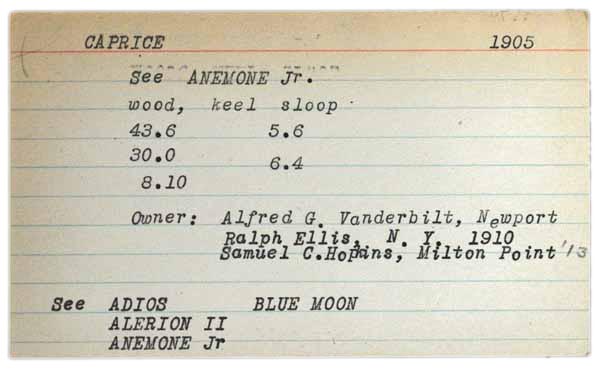 CAPRICE 1905
See ANEMONE Jr.
wood, keel sloop
43.6 5.6
30.0 6.4
8.10
Owner: Alfred G. Vanderbilt, Newport
Ralph Ellis, N. Y. 1910
Samuel C.Hopkins, Milton Point '13
See ADIOS BLUE MOON
ALERION II
ANEMONE Jr